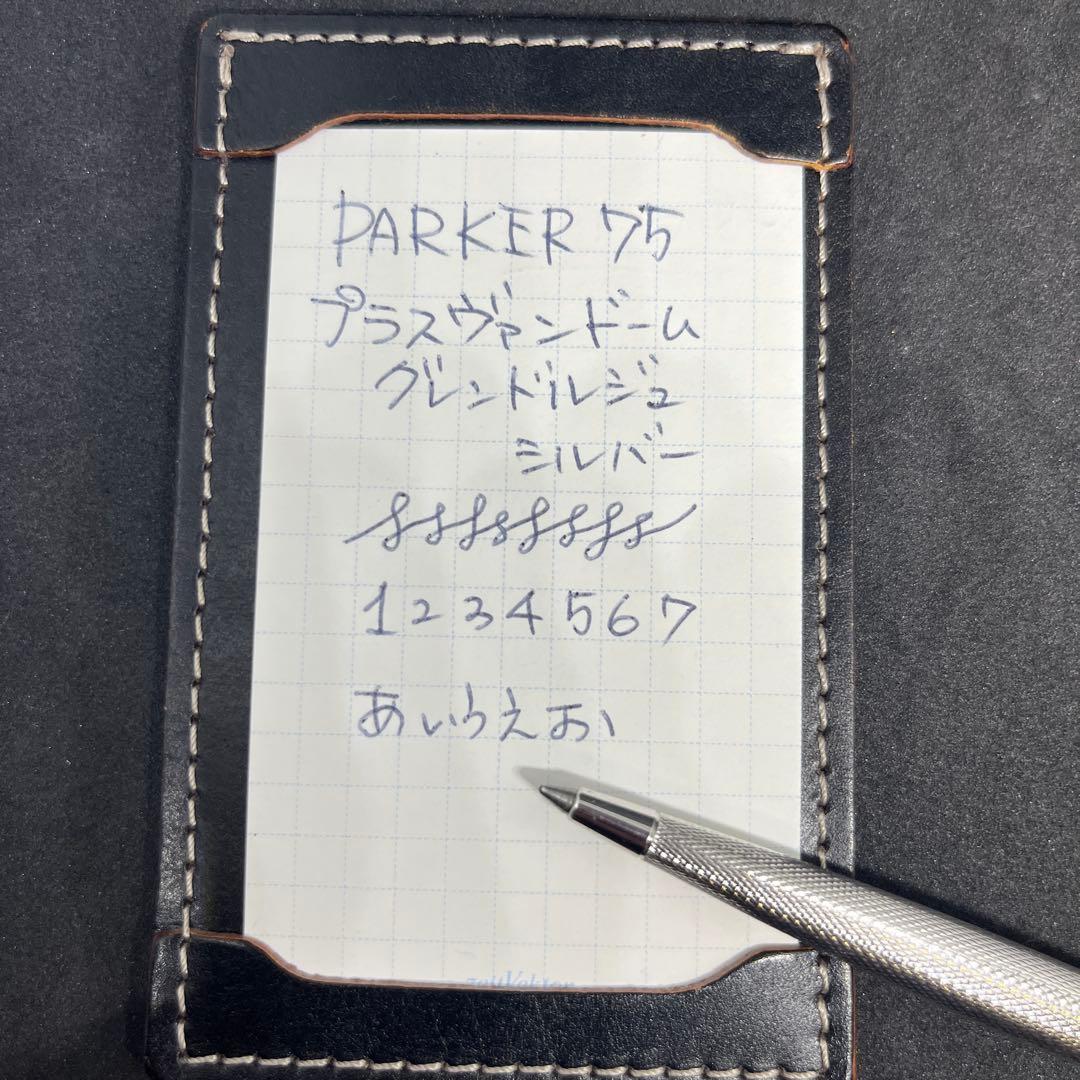 PARKER 75
プラスヴァンドーム
グレンドルジュ
シルバー
1 2 3 4 5 6 7
あいうえお